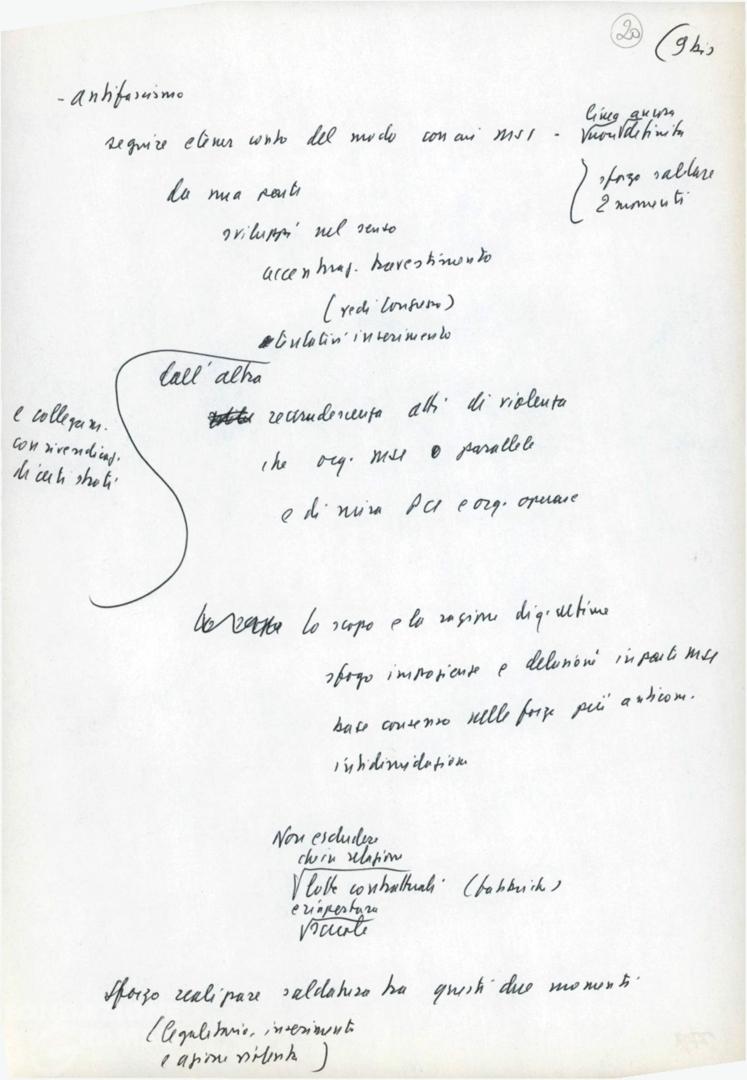 20
(9 bis
- antifascismo
linea ancora
non definita
seguire e tener conto del modo con cui MSI -
} sforzo saldare
2 momenti
da una parte
sviluppi nel senso
accentuaz. travestimento
(vedi Congresso)
tentativi inserimento
dall'altra
e collegam.
con rivendicaz.
di certi strati
recrudescenza atti di violenza
che org. MSI o parallele
e di mira PCI e org. operaie
lo scopo e la ragione di q. ultime
sfogo impazienze e delusioni in parte MSI
base consenso nelle forze più anticom.
intidimidazione
Non escludere
che in relazione
lotte contrattuali (fabbriche)
e riapertura
scuole
Sforzo realizzare saldatura tra questi due momenti
(legalitario, inserimento
e azione violenta)